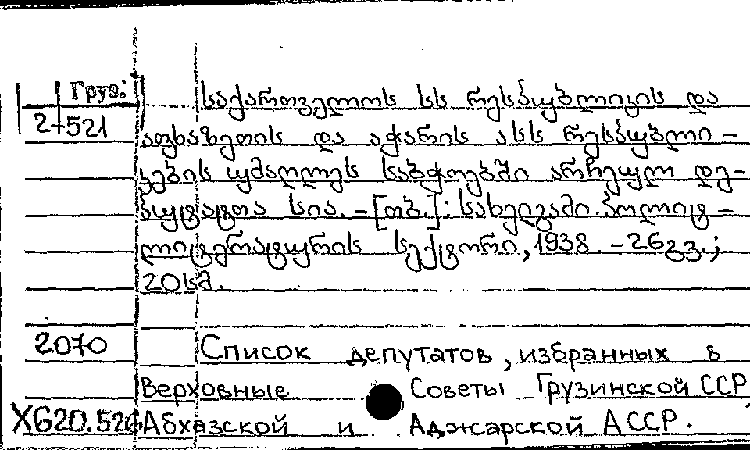 Груз.
2-521
საქართველოს სს რესპუბლიკის და
აფხაზეთის და აჭარის ასს რესპუბლი-
კების უმაღლეს საბჭოებში არჩეულ დე-
პუტატთა სია. - [თბ.]: სახელგამი. პოლიტ-
ლიტერატურის სექტორი, 1938. - 26 გვ.;
20 სმ.
2070
Список депутатов, избранных в
Верховные Советы Грузинской ССР
Х620.52 Абхазской и Аджарской АССР.